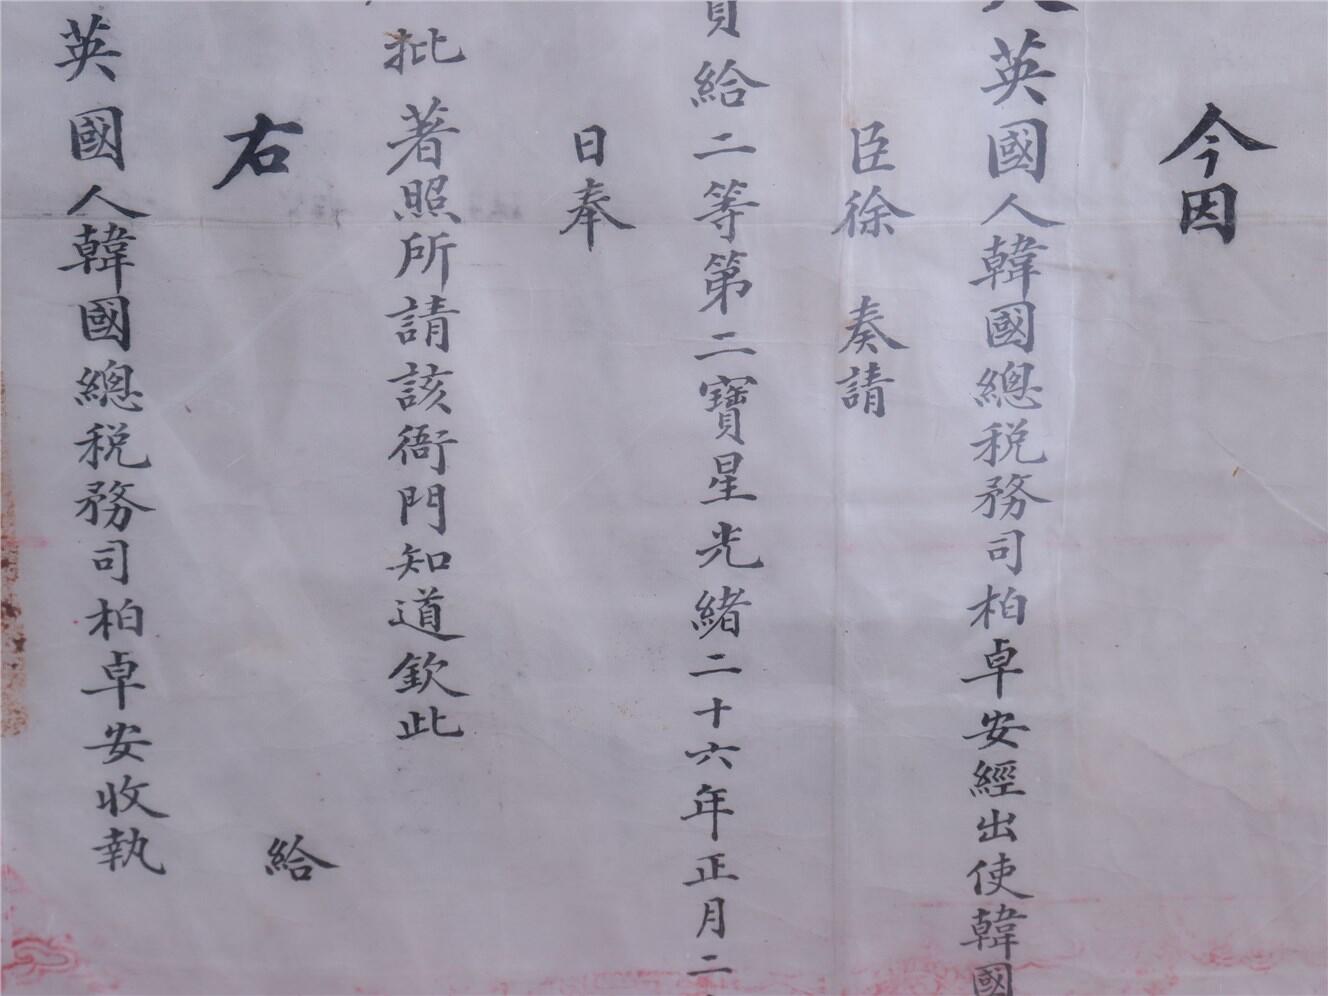 今因
英國人韓國總税務司柏卓安經出使韓國
臣徐 奏請
賞給二等第二寶星光緒二十六年正月二
日奉
批著照所請該衙門知道欽此
右 給
英國人韓國總税務司柏卓安收執